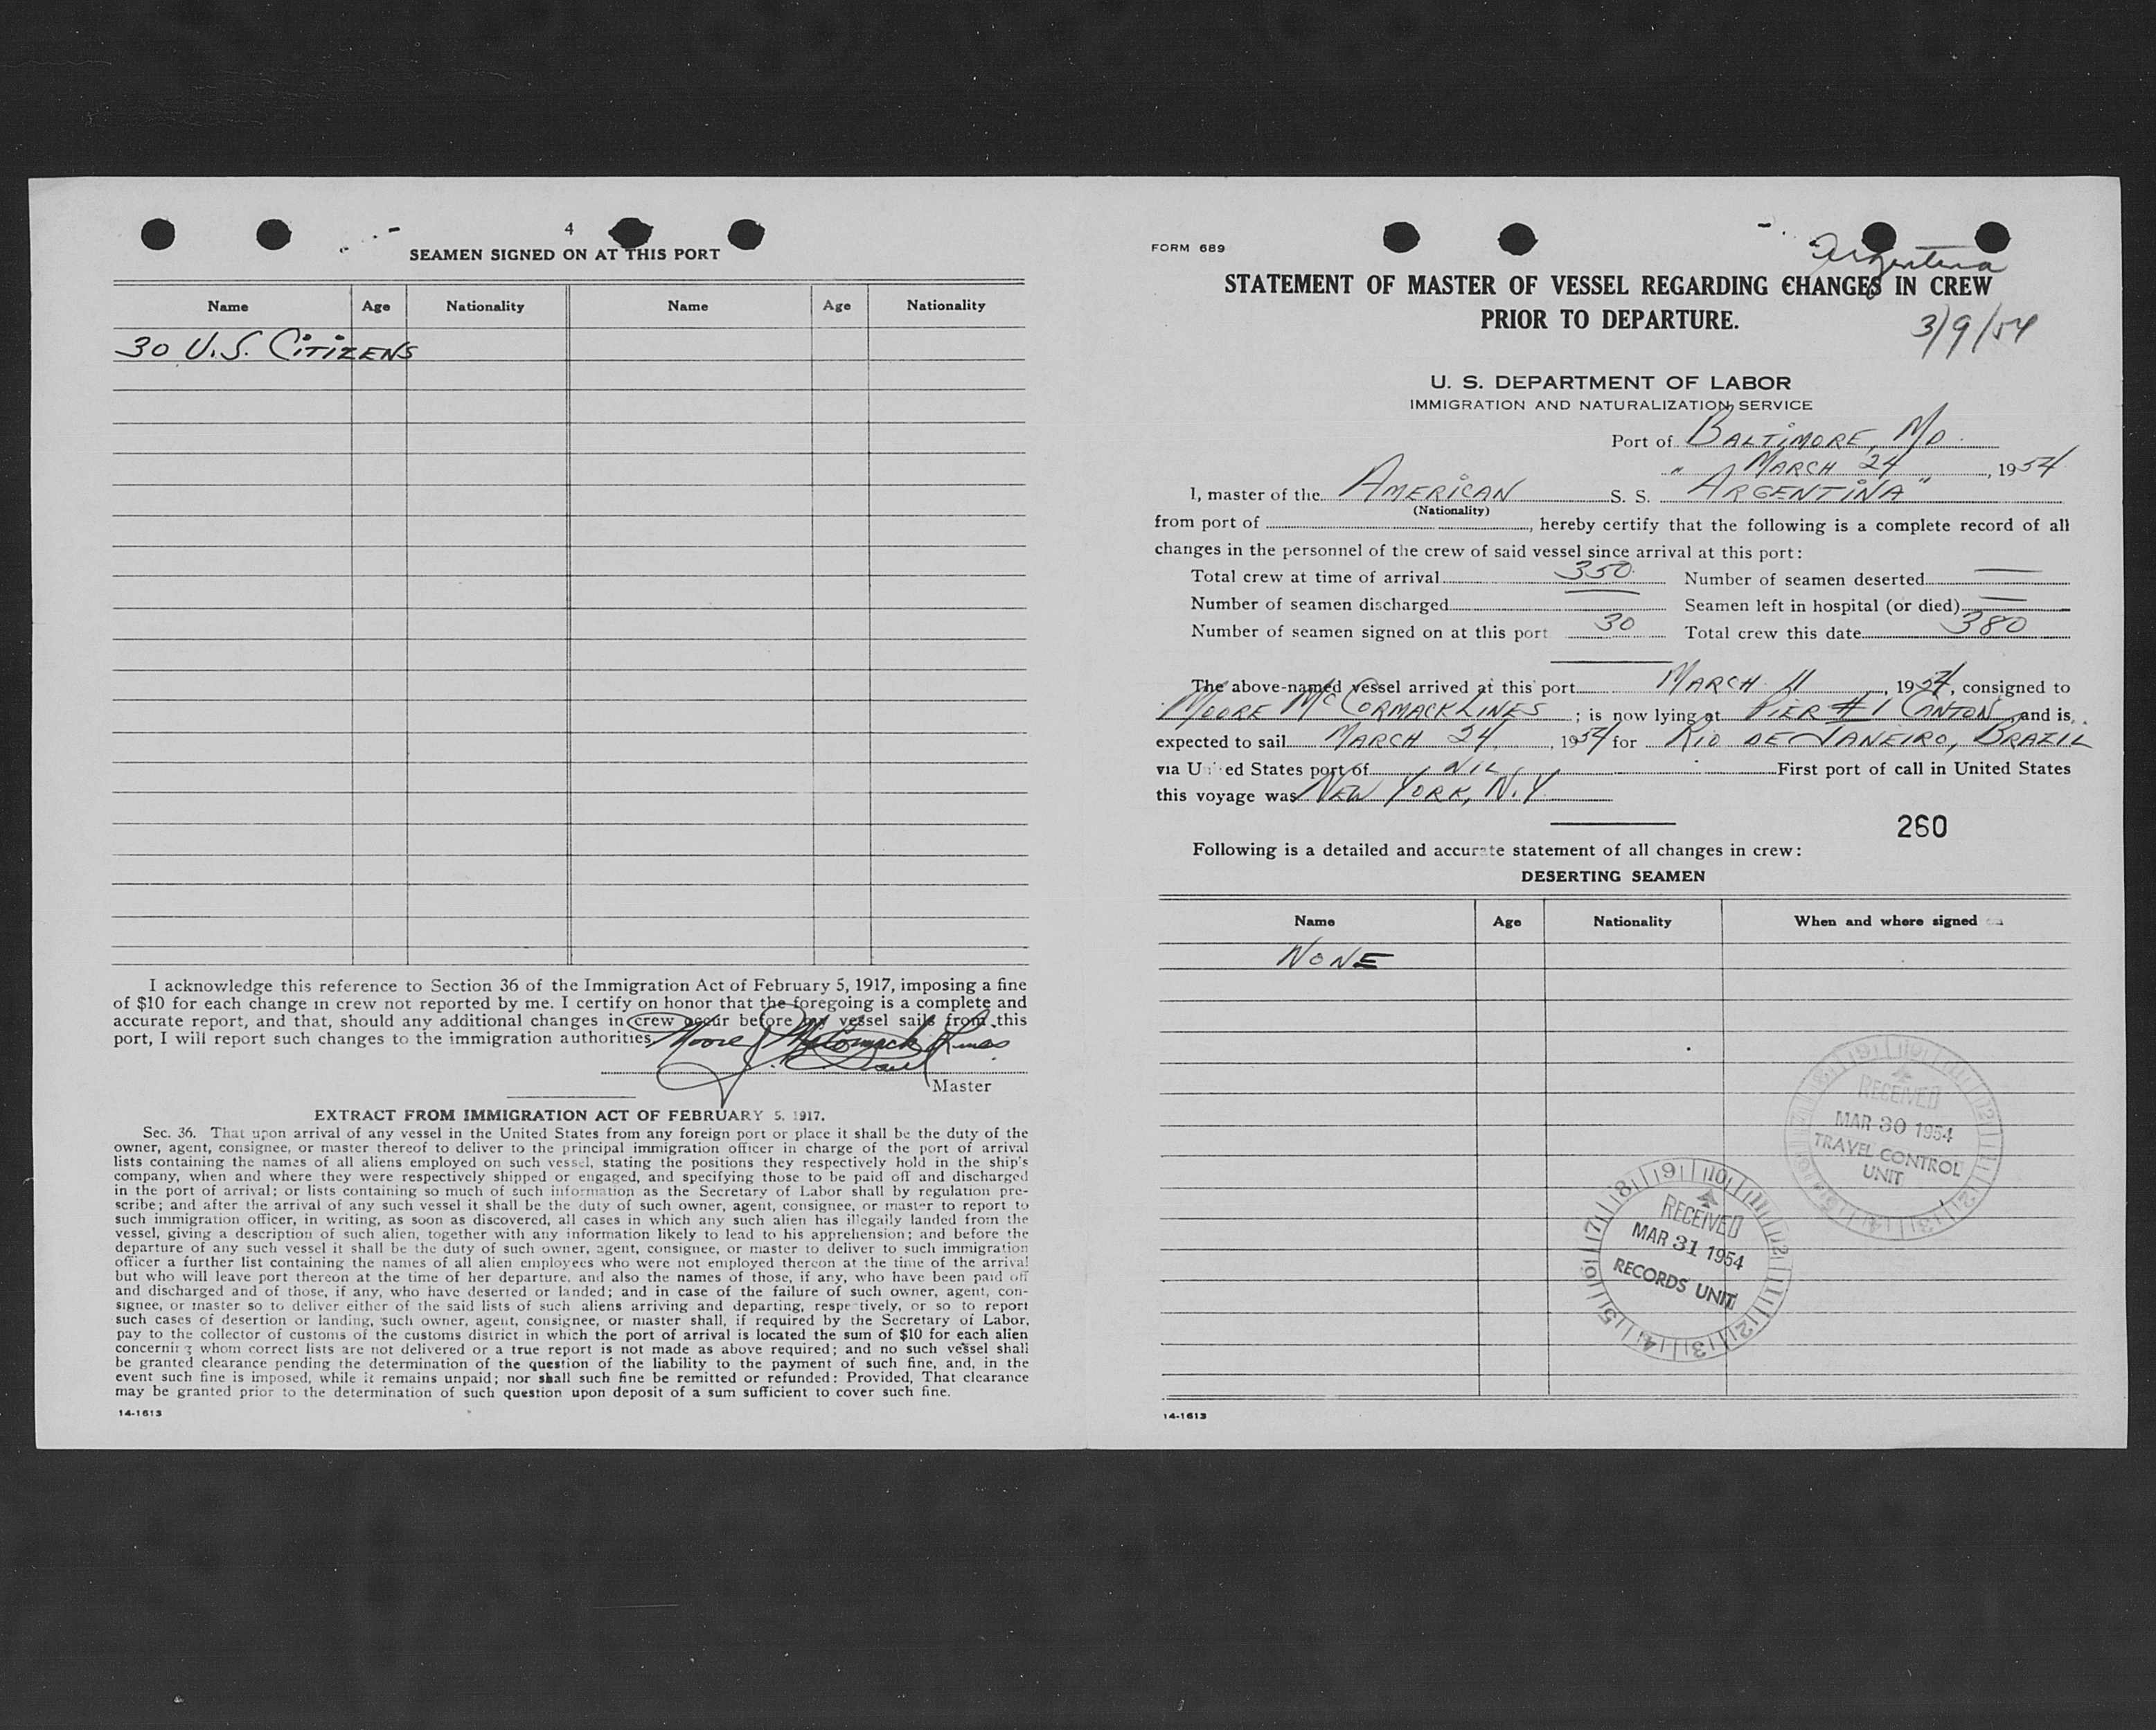 4
SEAMEN SIGNED ON AT THIS PORT
Name Age Nationality Name Age Nationality
30 U.S. CITIZENS
I acknowledge this reference to Section 36 of the Immigration Act of February 5, 1917, imposing a fine
of $10 for each change in crew not reported by me. I certify on honor that the foregoing is a complete and
accurate report, and that, should any additional changes in crew occur before my vessel sails from this
port, I will report such changes to the immigration authorities.
Moore McCormack Lines
Master
EXTRACT FROM IMMIGRATION ACT OF FEBRUARY 5, 1917.
Sec. 36. That upon arrival of any vessel in the United States from any foreign port or place it shall be the duty of the
owner, agent, consignee, or master thereof to deliver to the principal immigration officer in charge of the port of arrival
lists containing the names of all aliens employed on such vessel, stating the positions they respectively hold in the ship's
company, when and where they were respectively shipped or engaged, and specifying those to be paid off and discharged
in the port of arrival; or lists containing so much of such information as the Secretary of Labor shall by regulation pre-
scribe; and after the arrival of any such vessel it shall be the duty of such owner, agent, consignee, or master to report to
such immigration officer, in writing, as soon as discovered, all cases in which any such alien has illegally landed from the
vessel, giving a description of such alien, together with any information likely to lead to his apprehension; and before the
departure of any such vessel it shall be the duty of such owner, agent, consignee, or master to deliver to such immigration
officer a further list containing the names of all alien employees who were not employed thereon at the time of the arrival
but who will leave port thereon at the time of her departure, and also the names of those, if any, who have been paid off
and discharged and of those, if any, who have deserted or landed; and in case of the failure of such owner, agent, con-
signee, or master so to deliver either of the said lists of such aliens arriving and departing, respectively, or so to report
such cases of desertion or landing, such owner, agent, consignee, or master shall, if required by the Secretary of Labor,
pay to the collector of customs of the customs district in which the port of arrival is located the sum of $10 for each alien
concerning whom correct lists are not delivered or a true report is not made as above required; and no such vessel shall
be granted clearance pending the determination of the question of the liability to the payment of such fine, and, in the
event such fine is imposed, while it remains unpaid; nor shall such fine be remitted or refunded: Provided, That clearance
may be granted prior to the determination of such question upon deposit of a sum sufficient to cover such fine.
14-1613
FORM 689
Argentina
STATEMENT OF MASTER OF VESSEL REGARDING CHANGES IN CREW
PRIOR TO DEPARTURE.
3/9/54
U. S. DEPARTMENT OF LABOR
IMMIGRATION AND NATURALIZATION SERVICE
Port of BALTIMORE, MD.
MARCH 24, 1954
I, master of the AMERICAN S. S. "ARGENTINA"
(Nationality)
from port of , hereby certify that the following is a complete record of all
changes in the personnel of the crew of said vessel since arrival at this port:
Total crew at time of arrival 350 Number of seamen deserted —
Number of seamen discharged — Seamen left in hospital (or died) —
Number of seamen signed on at this port 30 Total crew this date 380
The above-named vessel arrived at this port MARCH 11, 1954, consigned to
MOORE MCCORMACK LINES ; is now lying at PIER #1 CANTON, and is
expected to sail MARCH 24, 1954 for RIO DE JANEIRO, BRAZIL
via United States port of NIL First port of call in United States
this voyage was NEW YORK, N.Y.
260
Following is a detailed and accurate statement of all changes in crew:
DESERTING SEAMEN
Name Age Nationality When and where signed
NONE
RECEIVED
MAR 30 1954
TRAVEL CONTROL
UNIT
RECEIVED
MAR 31 1954
RECORDS UNIT
14-1613